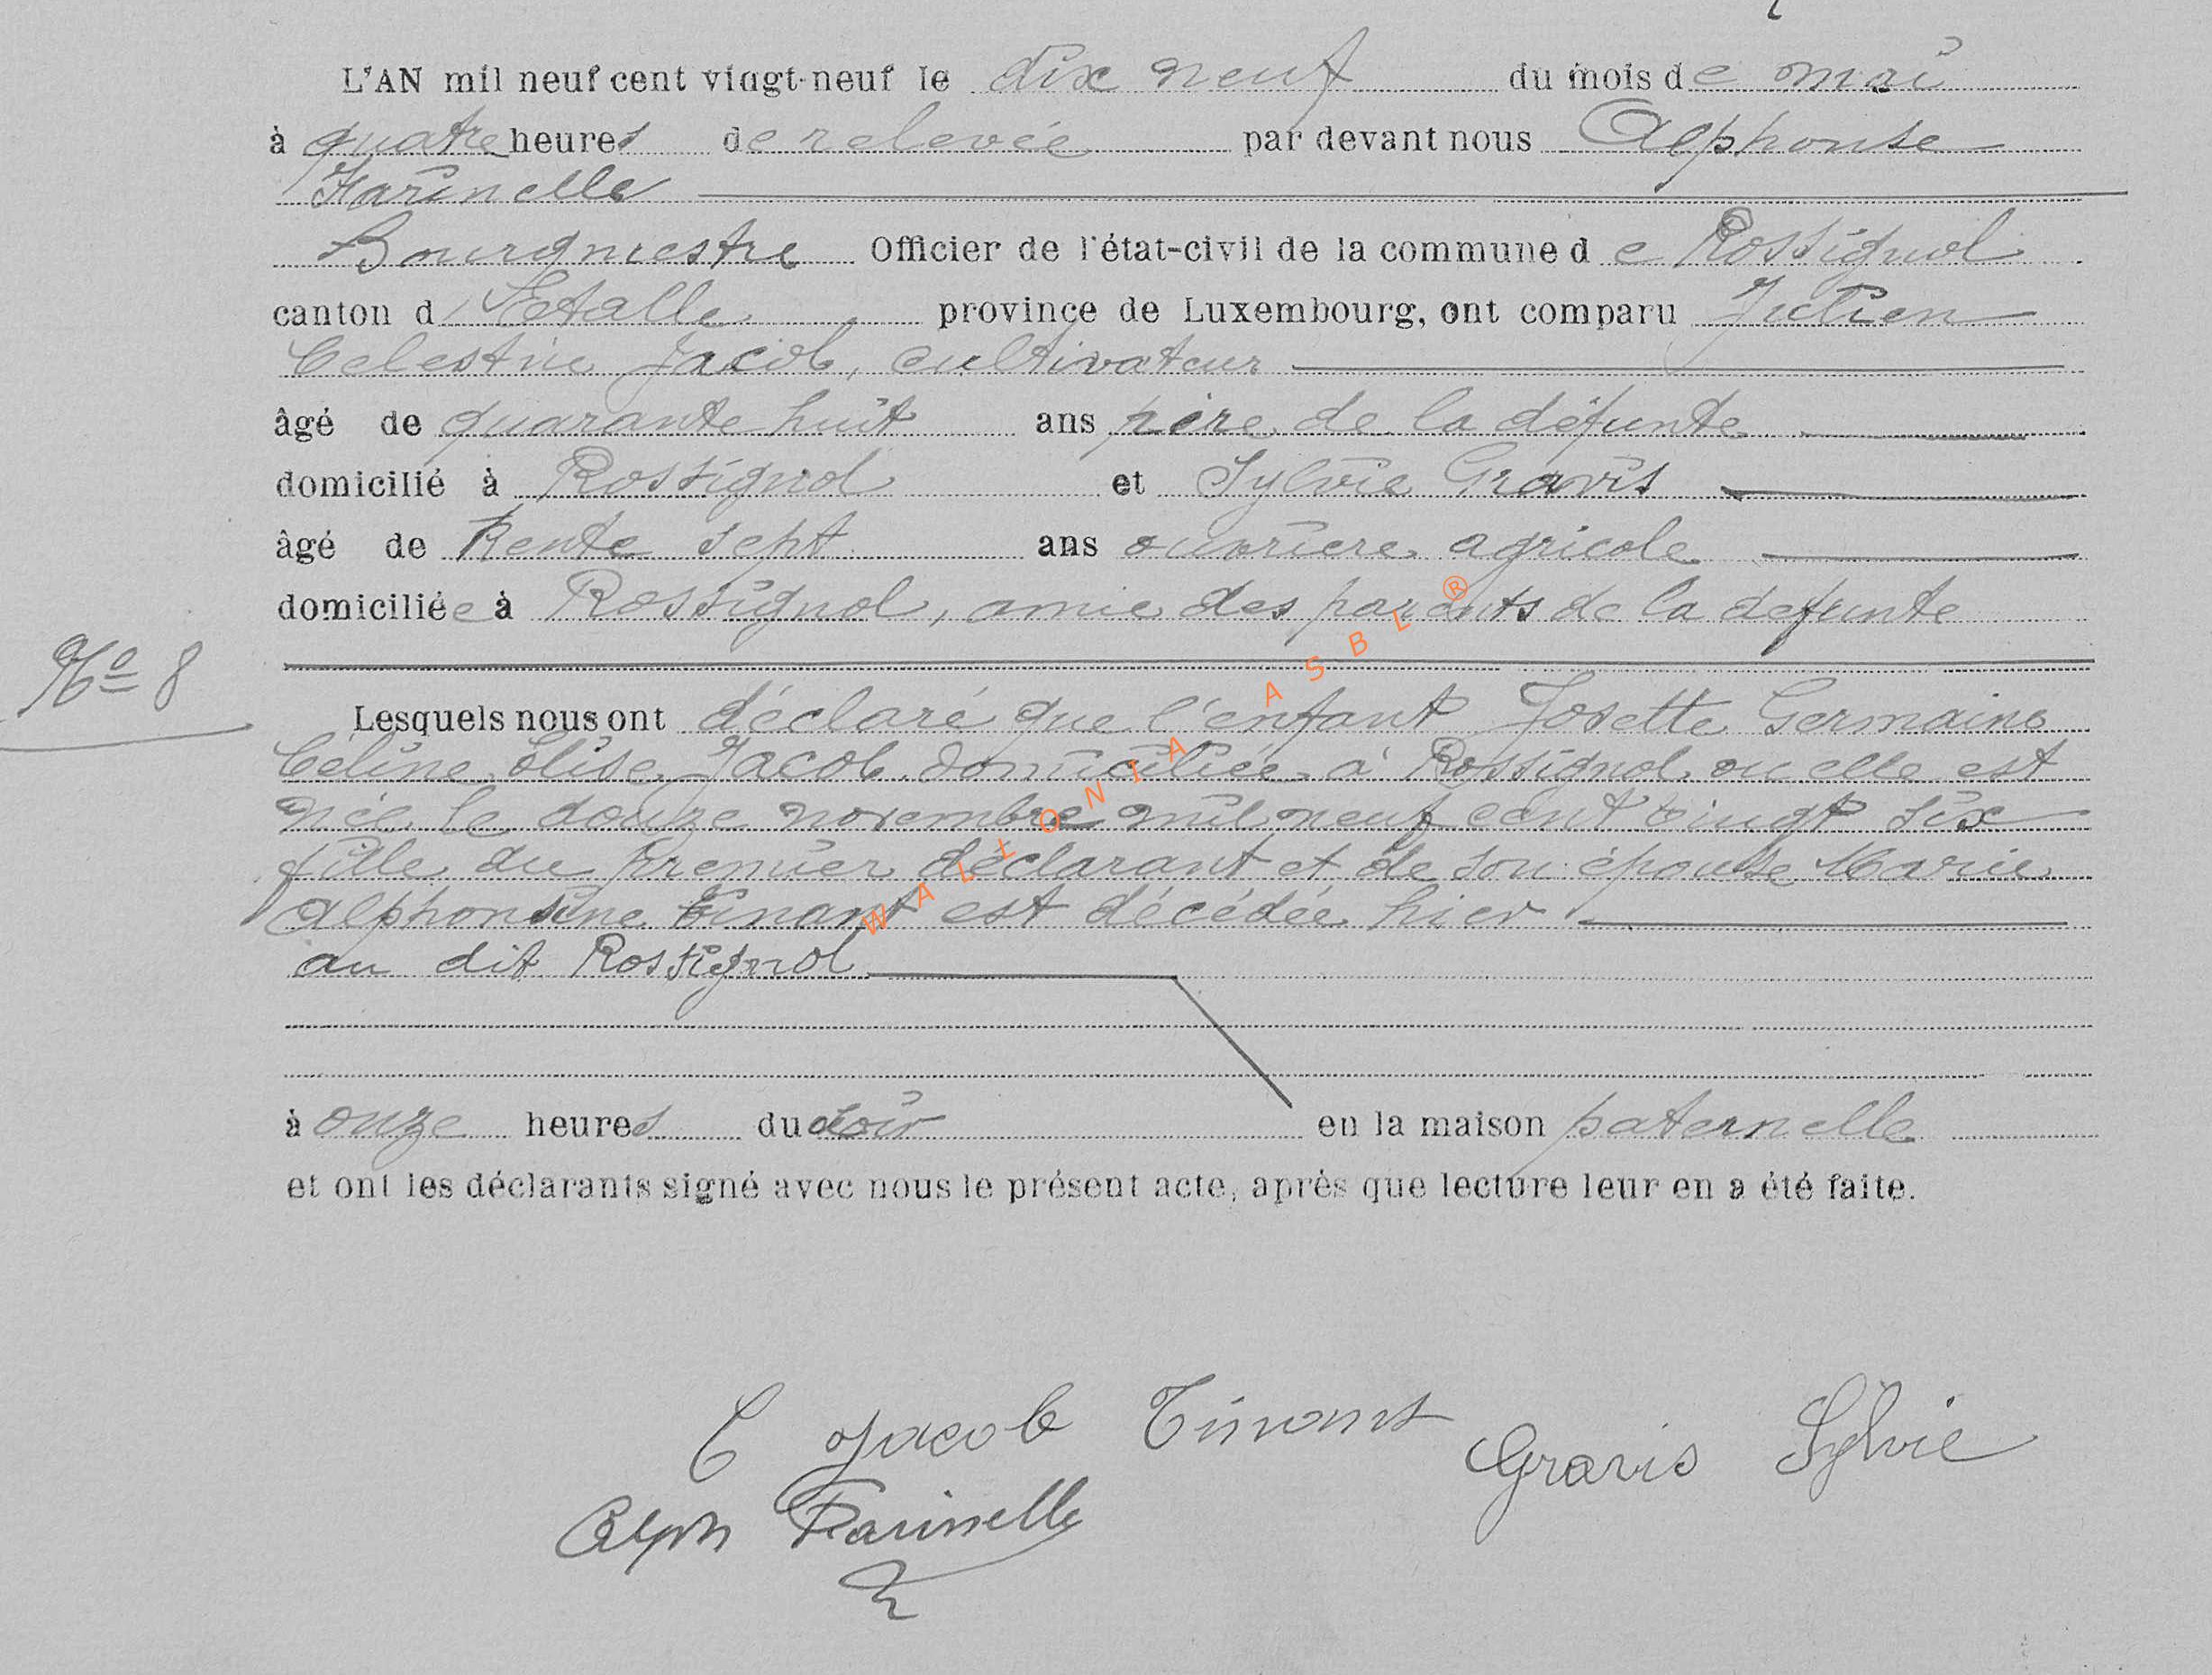 L'AN mil neuf cent vingt-neuf le dix neuf du mois de mai
à quatre heures de relevée par devant nous Alphonse
Farinelle
Bourgmestre Officier de l'état-civil de la commune de Rossignol
canton d'Etalle province de Luxembourg, ont comparu Julien
Celestin Jacob, cultivateur
âgé de quarante huit ans père de la défunte
domicilié à Rossignol et Sylvie Gravis
âgé de trente sept ans ouvrière agricole
domiciliée à Rossignol, amie des parents de la defunte
No 8
Lesquels nous ont déclaré que l'enfant Josette Germaine
Céline Elise Jacob domiciliée à Rossignol ou elle est
née le douze novembre mil neuf cent vingt six
fille du premier déclarant et de son épouse Marie
Alphonsine Tinant est décédée hier
au dit Rossignol
à onze heures du soir en la maison paternelle
et ont les déclarants signé avec nous le présent acte, après que lecture leur en a été faite.
C Jacob Tinant Gravis Sylvie
Alph Farinelle
WALLONIA ASBL ®